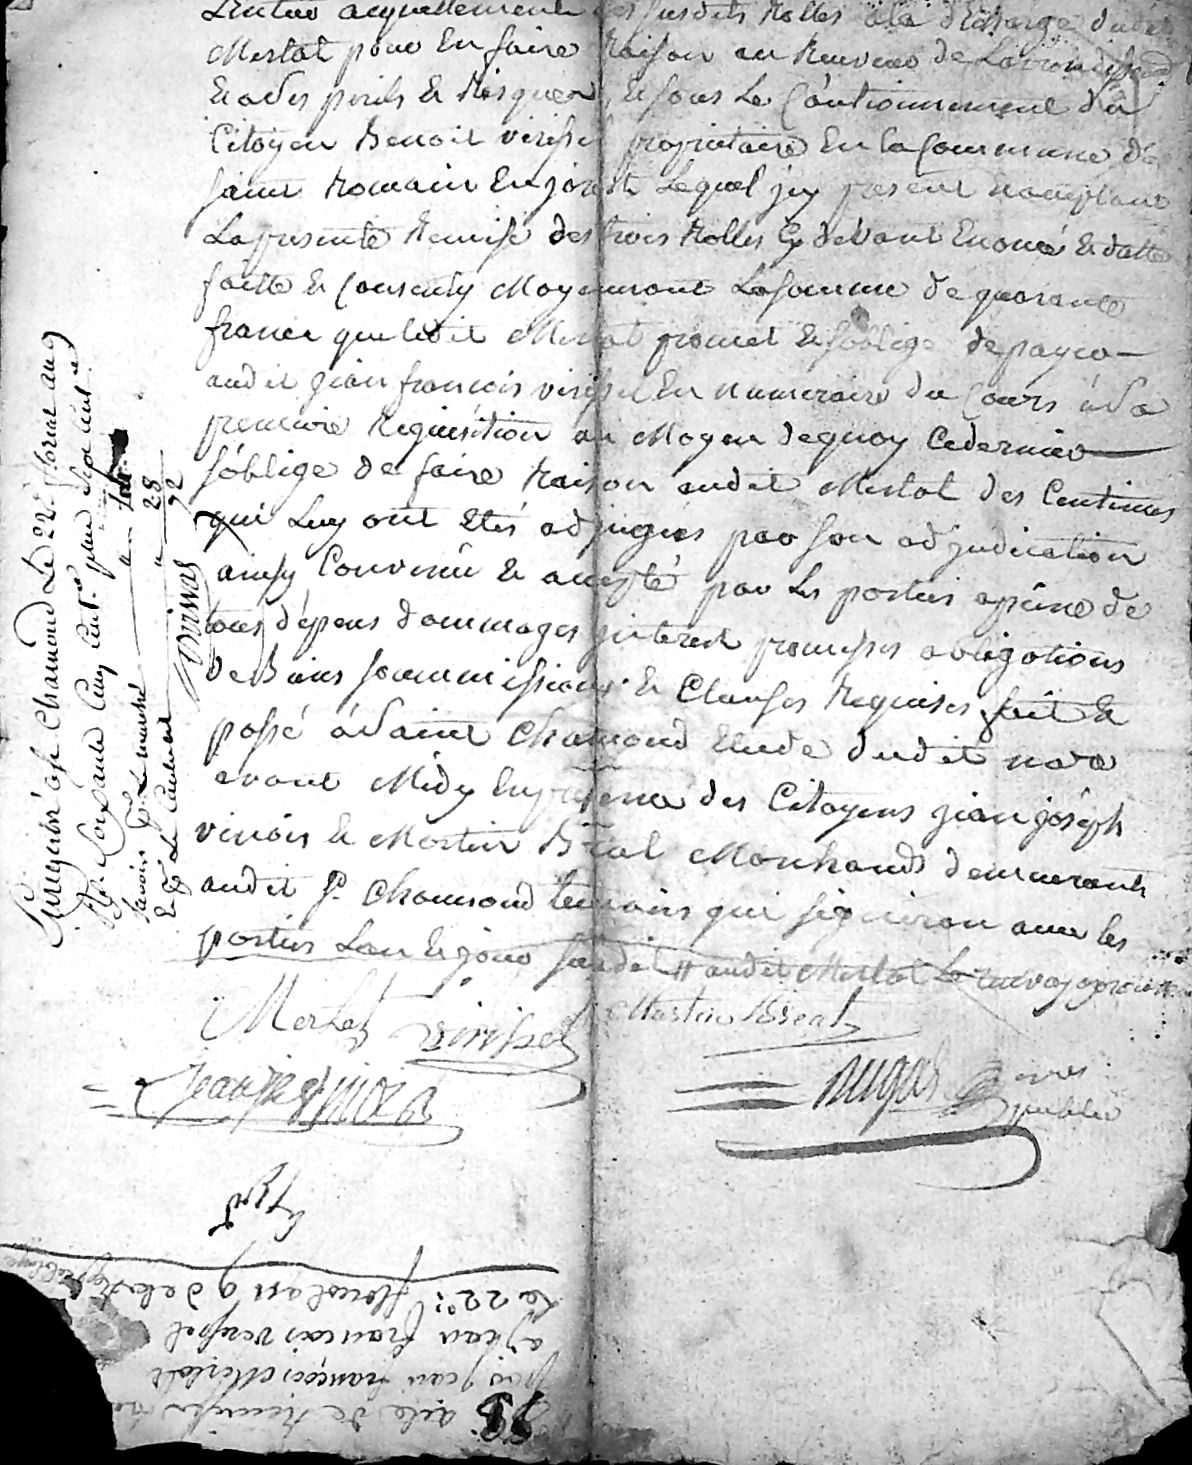 Lentier acquittement des susdits Rolles à la décharge dudit
Merlat pour En faire Raison au Receveur de
Et a des perils Et Risques, Et sous Le Cautionnement du
Citoyen Benoit virissel proprietaire En la Commune de
saint Romain En jarest Lequel jcy present Et acceptant
La presente Remise des trois Rolles Cy devant Enoncé Et datté
faitte Et Consenty Moyennant La somme de quarante
francs que ledit Merlat promet Et soblige de payer
audit jean francois virissel En numeraire du Cours à la
premiere Requisition au Moyen de quoy Ce dernier
soblige de faire Raison audit Merlat des Centimes
qui Luy ont Etés adjugées par son adjudication
ainsy Convenû Et accepté par Les parties a peine de
tous dépens dommages jnterest promesses obligations
de Biens soummissions Et Clauses Requises fait Et
passé à Saint Chamond Etude dudit nore
avant Midy En presence des Citoyens jean joséph
vinois Et Martin Béal Marchands demeurants
audit St. Chamond temoins qui signeron avec les
parties Lan Et jour susdit // audit Merlat Le renvoy approuvé
Merlat virissel Martin Béal
Jean Jph vinois
dugas nore public
Enregistré a St Chamond Le 22 floréal an 9
Rç soixante Cinq Cent.es plus sept Cent.es
Savoir pr Le marché
Et pr Le Cautionnemt 28
92
acte de Remise
par jean françois Merlat
a jean francois virissel
Le 22e floreal an 9 de la Republique